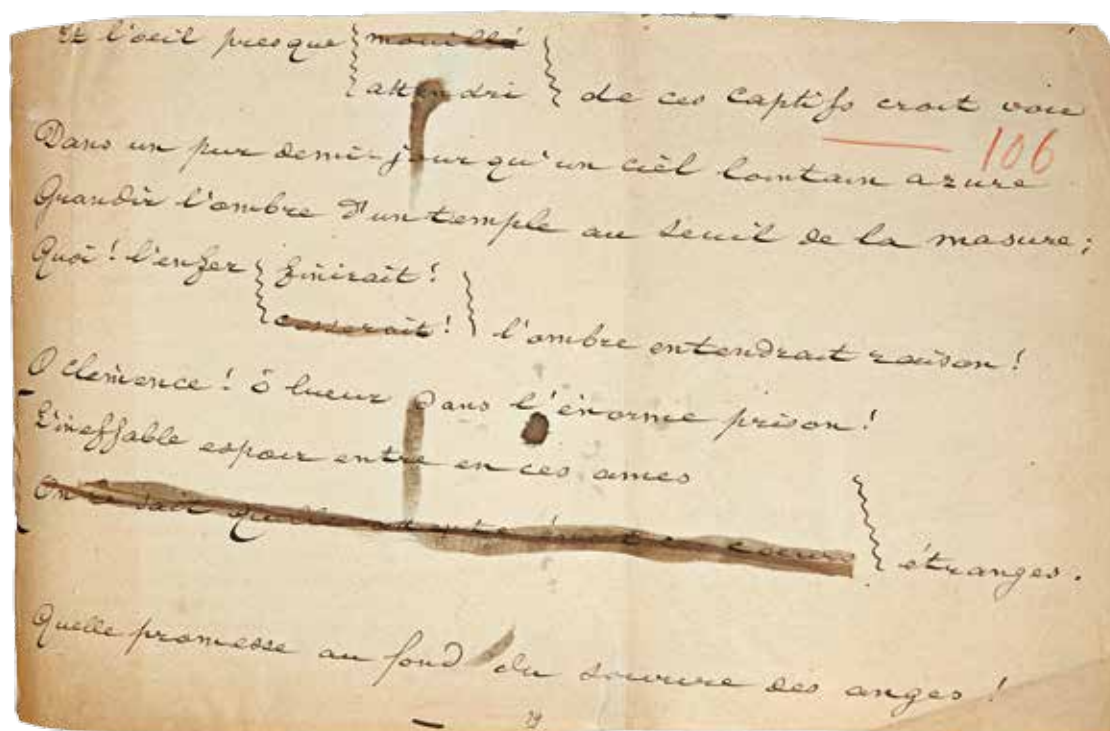 Et l'oeil presque mouillé
attendri de ces captifs croit voir
106
Dans un pur demi-jour qu'un ciel lointain azure
Grandir l'ombre d'un temple au seuil de la masure;
Quoi! l'enfer finirait!
cesserait! l'ombre entendrait raison!
O clémence! ô lueur dans l'énorme prison!
L'ineffable espoir entre en ces ames
On ne sait quelle dans ces coeurs étranges.
Quelle promesse au fond du sourire des anges!